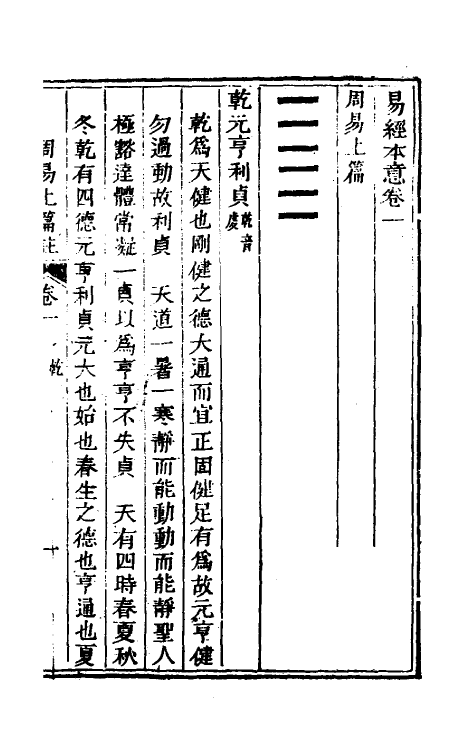 易經本意卷一
周易上篇
乾元亨利貞乾音虔
乾爲天健也剛健之德大通而宜正固健足有爲故元亨健
勿過動故利貞　天道一暑一寒靜而能動動而能靜聖人
極豁達體常凝一貞以爲亨亨不失貞　天有四時春夏秋
冬乾有四德元亨利貞元大也始也春生之德也亨通也夏
周易上篇註　卷一　乾